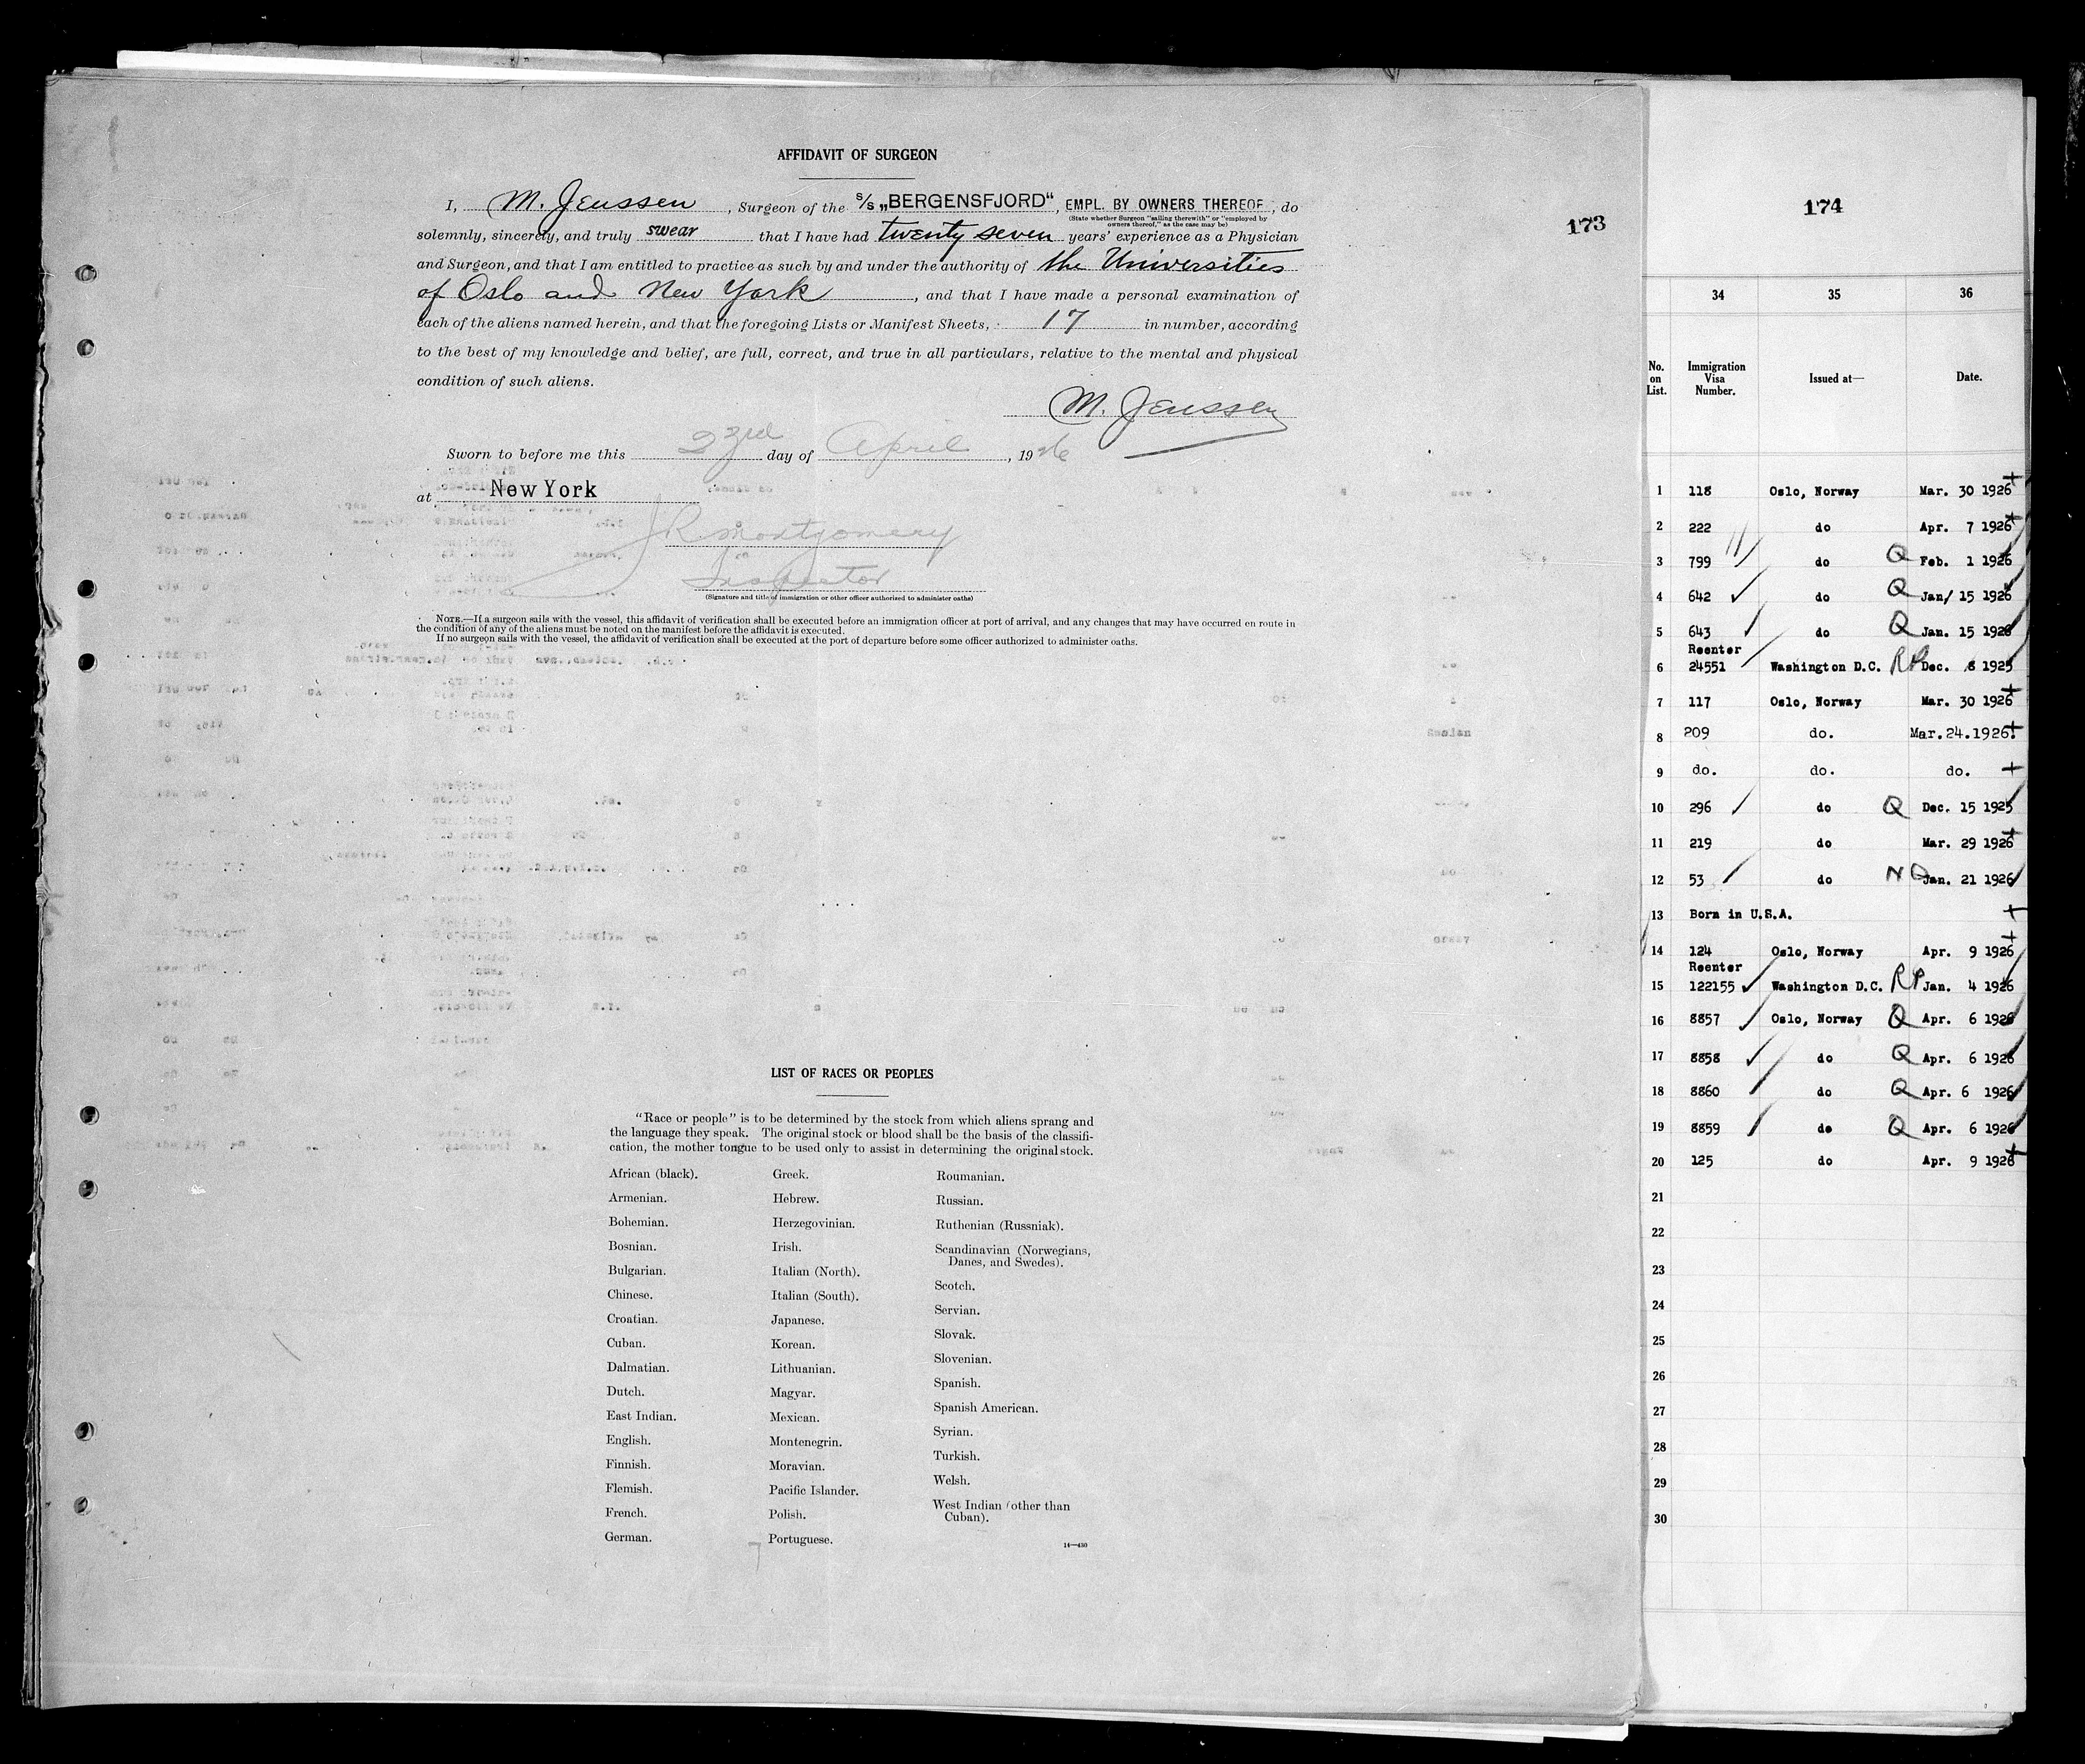 AFFIDAVIT OF SURGEON
I, M. Jenssen, Surgeon of the S/S „BERGENSFJORD“, EMPL. BY OWNERS THEREOF, do
(State whether Surgeon "sailing therewith" or "employed by
owners thereof," as the case may be)
solemnly, sincerely, and truly swear that I have had twenty seven years' experience as a Physician
and Surgeon, and that I am entitled to practice as such by and under the authority of the Universities
of Oslo and New York, and that I have made a personal examination of
each of the aliens named herein, and that the foregoing Lists or Manifest Sheets, 17 in number, according
to the best of my knowledge and belief, are full, correct, and true in all particulars, relative to the mental and physical
condition of such aliens.
M. Jenssen
Sworn to before me this 23rd day of April, 1926
at New York
JR Montgomery
Inspector
(Signature and title of immigration or other officer authorized to administer oaths)
NOTE.—If a surgeon sails with the vessel, this affidavit of verification shall be executed before an immigration officer at port of arrival, and any changes that may have occurred en route in
the condition of any of the aliens must be noted on the manifest before the affidavit is executed.
If no surgeon sails with the vessel, the affidavit of verification shall be executed at the port of departure before some officer authorized to administer oaths.
173
LIST OF RACES OR PEOPLES
"Race or people" is to be determined by the stock from which aliens sprang and
the language they speak. The original stock or blood shall be the basis of the classifi-
cation, the mother tongue to be used only to assist in determining the original stock.
African (black).
Armenian.
Bohemian.
Bosnian.
Bulgarian.
Chinese.
Croatian.
Cuban.
Dalmatian.
Dutch.
East Indian.
English.
Finnish.
Flemish.
French.
German.
Greek.
Hebrew.
Herzegovinian.
Irish.
Italian (North).
Italian (South).
Japanese.
Korean.
Lithuanian.
Magyar.
Mexican.
Montenegrin.
Moravian.
Pacific Islander.
Polish.
Portuguese.
Roumanian.
Russian.
Ruthenian (Russniak).
Scandinavian (Norwegians,
Danes, and Swedes).
Scotch.
Servian.
Slovak.
Slovenian.
Spanish.
Spanish American.
Syrian.
Turkish.
Welsh.
West Indian (other than
Cuban).
14—430
174
34 35 36
No. on List. Immigration Visa Number. Issued at— Date.
1 118 Oslo, Norway Mar. 30 1926
2 222 do Apr. 7 1926
3 799 do Q Feb. 1 1926
4 642 do Q Jan/ 15 1926
5 643 do Q Jan. 15 1926
Reenter
6 24551 Washington D.C. RP Dec. 8 1925
7 117 Oslo, Norway Mar. 30 1926
8 209 do. Mar.24.1926.
9 do. do. do.
10 296 do Q Dec. 15 1925
11 219 do Mar. 29 1926
12 53 do NQ Jan. 21 1926
13 Born in U.S.A.
14 124 Oslo, Norway Apr. 9 1926
Reenter
15 122155 Washington D.C. RP Jan. 4 1926
16 8857 Oslo, Norway Q Apr. 6 1926
17 8858 do Q Apr. 6 1926
18 8860 do Q Apr. 6 1926
19 8859 do Q Apr. 6 1926
20 125 do Apr. 9 1926
21
22
23
24
25
26
27
28
29
30